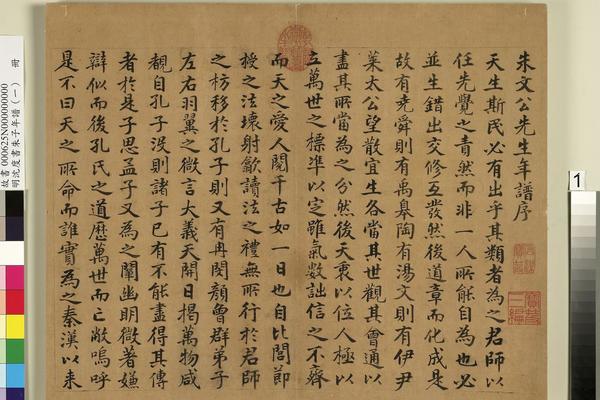 朱文公先生年譜序
天生斯民必有出乎其類者為之君師以
任先覺之責然而非一人所能自為也必
並生錯出交修互發然後道章而化成是
故有堯舜則有禹臯陶有湯文則有伊尹
萊太公望散宜生各當其世觀其會通以
盡其所當為之分然後天衷以位人極以
立萬世之標準以定雖氣數詘信之不齊
而天之愛人閱千古如一日也自比閭節
授之法壞射飲讀法之禮無所行於君師
之枋移於孔子則又有冉閔顏曾群弟子
左右羽翼之微言大義天開日揭萬物咸
覩自孔子沒則諸子已有不能盡得其傳
者於是子思孟子又為之闡幽明微著嫌
辯似而後孔氏之道歷萬世而亡敝嗚呼
是不曰天之所命而誰實為之秦漢以来
故書 000625N000000000 冊
明沈度書朱子年譜 (一)
1